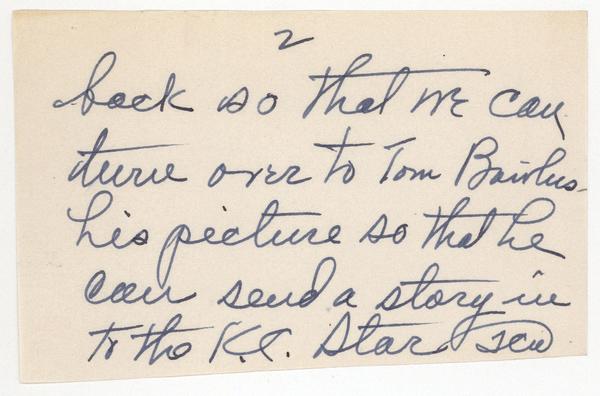 2
back so that we can
turn over to Tom
his picture so that he
can send a story in
to the K.C. Star